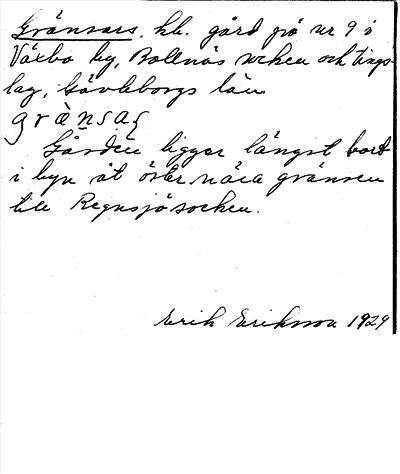 Gränsars, hb. gård på nr 9 i
Växbo by, Bollnäs socken och tings-
lag, Gävleborgs län.
grä̀nsaʂ
Gården ligger längst bort
i byn åt öster nära gränsen
till Regnsjö socken.
Erik Eriksson 1929